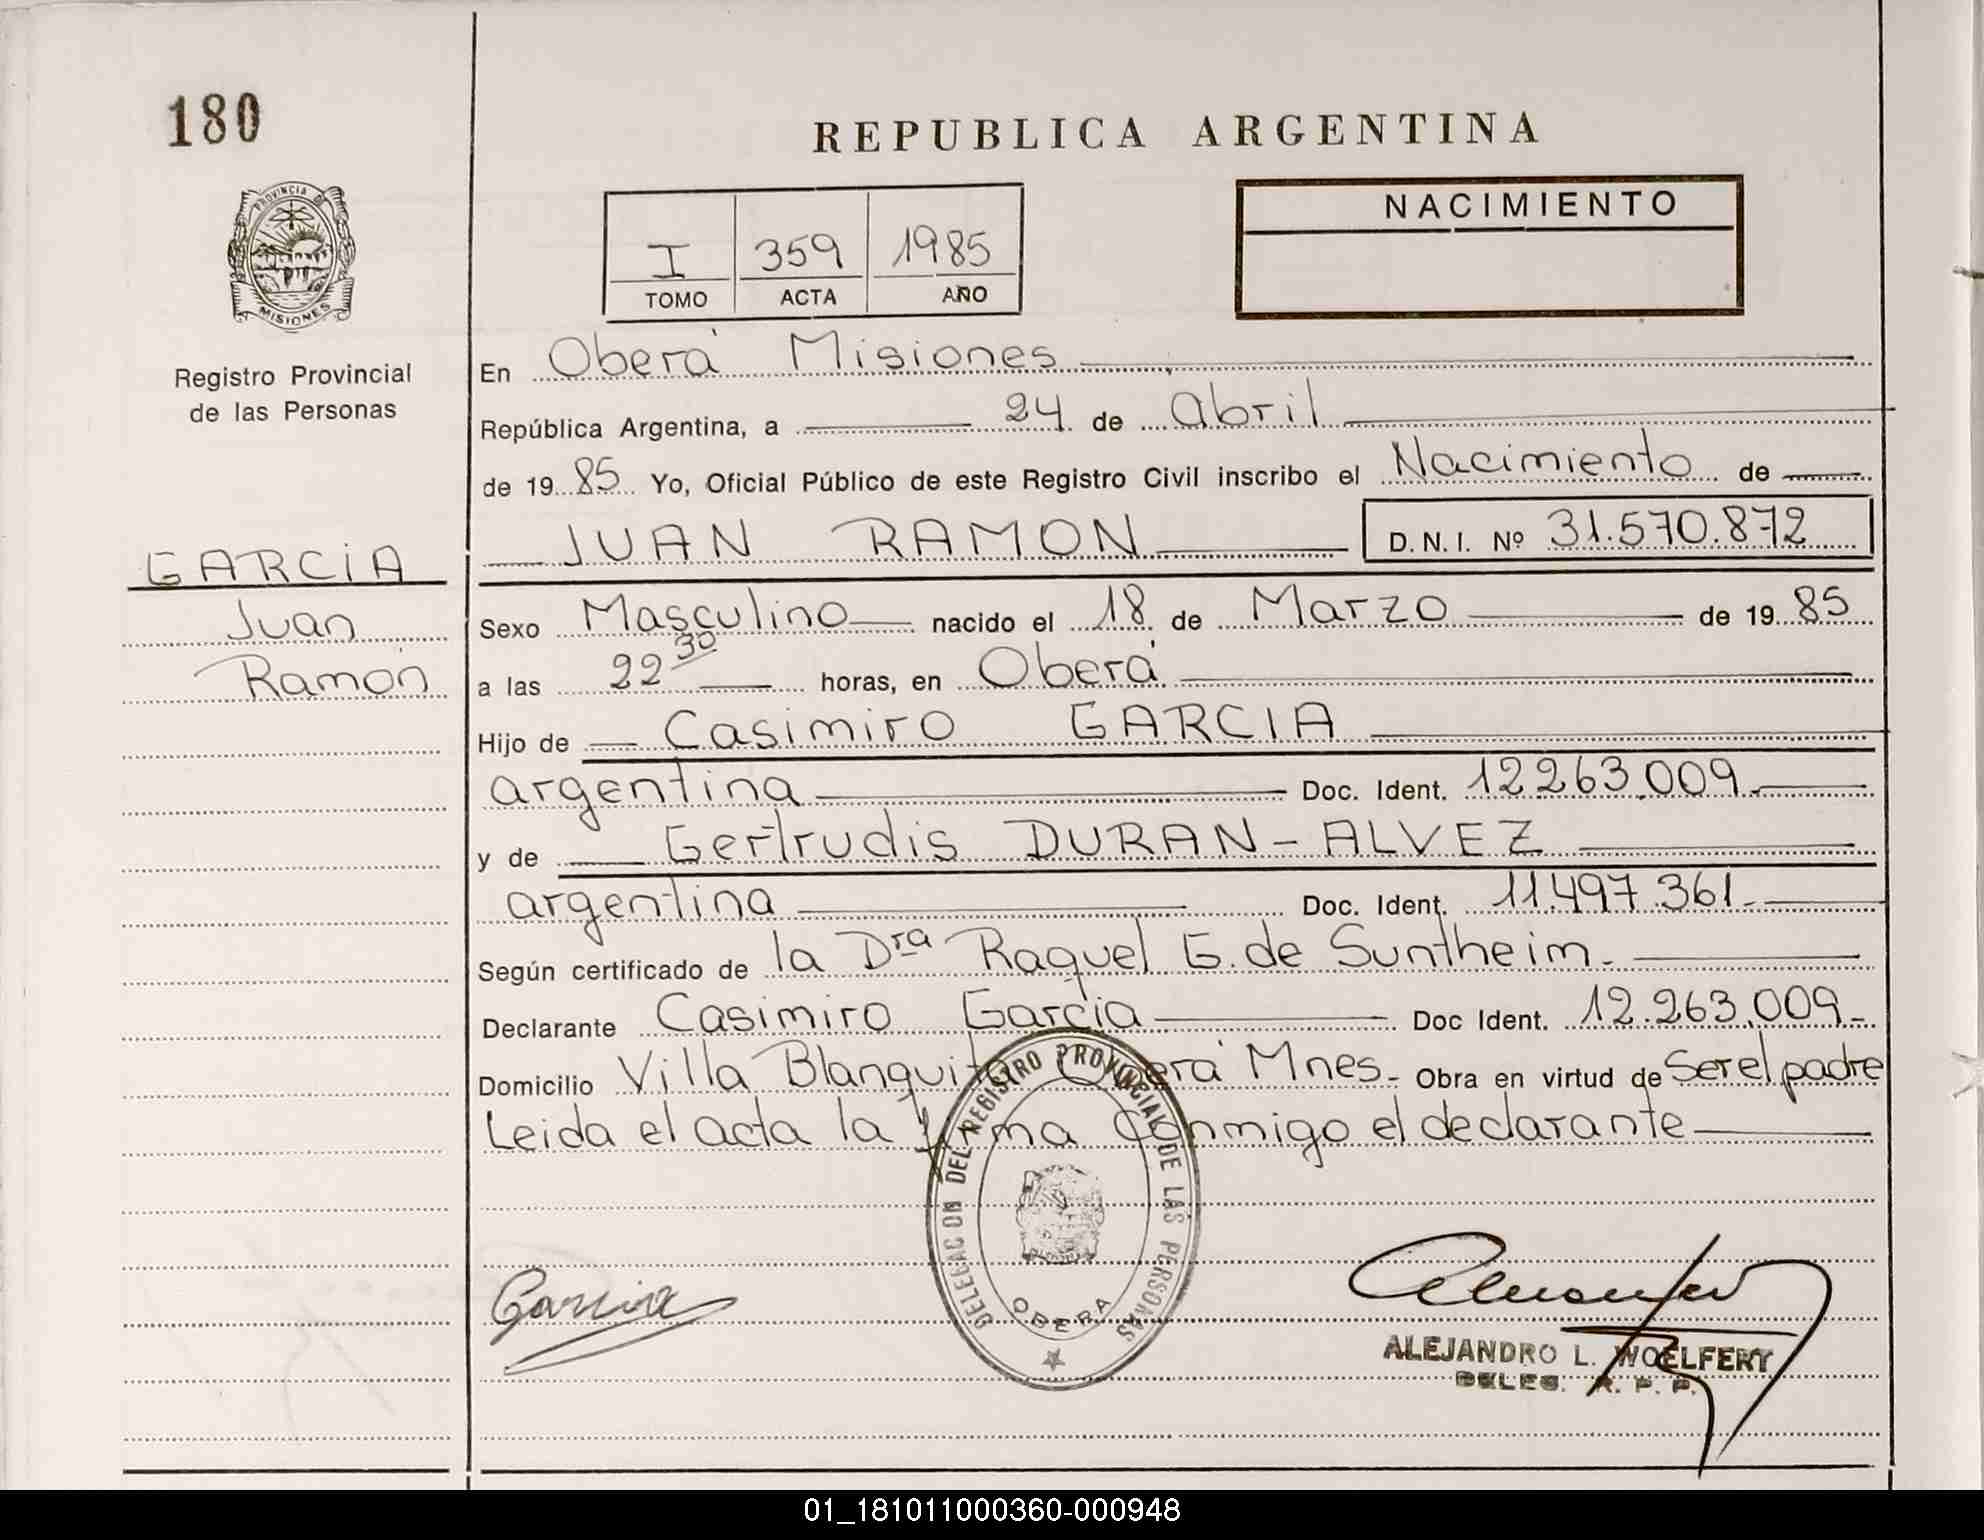 180
REPUBLICA ARGENTINA
PROVINCIA DE
MISIONES
Registro Provincial
de las Personas
I 359 1985
TOMO ACTA AÑO
NACIMIENTO
En Oberá Misiones
República Argentina, a 24 de Abril
de 1985 Yo, Oficial Público de este Registro Civil inscribo el Nacimiento de
JUAN RAMON D.N.I. Nº 31.570.872
GARCIA
Juan
Ramón
Sexo Masculino nacido el 18 de Marzo de 1985
a las 22 30 horas, en Oberá
Hijo de Casimiro GARCIA
argentina Doc. Ident. 12263.009
y de Gertrudis DURAN - ALVEZ
argentina Doc. Ident. 11.497.361.
Según certificado de la Dra Raquel G. de Suntheim.
Declarante Casimiro Garcia Doc Ident. 12.263.009-
Domicilio Villa Blanquita Oberá Mnes. Obra en virtud de Ser el padre
Leida el acta la firma conmigo el declarante
DELEGACION DEL REGISTRO PROVINCIAL DE LAS PERSONAS
OBERA
Garcia
ALEJANDRO L. WOELFERT
DELEG. R. P. P.
01_181011000360-000948